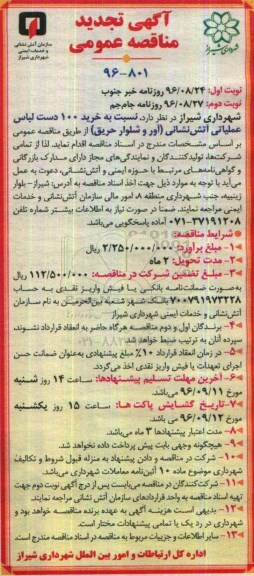 آگهی تجدید
مناقصه عمومی
۹۶-۸۰۱
شهرداری شیراز
سازمان آتش نشانی
و خدمات ایمنی
شهرداری شیراز
نوبت اول: ۹۶/۰۸/۲۴ روزنامه خبر جنوب
نوبت دوم: ۹۶/۰۸/۲۷ روزنامه جام‌جم
شهرداری شیراز در نظر دارد، نسبت به خرید ۱۰۰ دست لباس
عملیاتی آتش‌نشانی (آور و شلوار حریق) از طریق مناقصه عمومی
بر اساس مشخصات مندرج در اسناد مناقصه اقدام نماید. لذا از تمامی
شرکت‌ها، تولیدکنندگان و نمایندگی‌های مجاز دارای مدارک بازرگانی
و گواهی‌نامه‌های مرتبط با حوزه ایمنی و آتش‌نشانی، دعوت به عمل
می‌آید با توجه به موارد ذیل جهت اخذ اسناد مناقصه به آدرس: شیراز – بلوار
زینبیه، جنب شهرداری منطقه ۸، امور مالی سازمان آتش‌نشانی و خدمات
ایمنی مراجعه نمایند. ضمناً در صورت نیاز به اطلاعات بیشتر شماره تلفن
۳۷۱۹۱۲۰۸-۰۷۱ آماده پاسخگویی می‌باشد.
شرایط مناقصه:
۱- مبلغ برآورد: ۲/۲۵۰/۰۰۰/۰۰۰ ریال
۲- مدت تحویل: ۲ ماه
۳- مبلغ تضمین شرکت در مناقصه: ۱۱۲/۵۰۰/۰۰۰ ریال
به‌صورت ضمانت‌نامه بانکی یا فیش واریز نقدی به حساب
۷۰۰۷۹۱۹۷۳۲۲۸ بانک شهر شعبه بین‌الحرمین به نام سازمان
آتش‌نشانی و خدمات ایمنی شهرداری شیراز
۴- برندگان اول و دوم مناقصه هرگاه حاضر به انعقاد قرارداد نشوند،
سپرده آنان به ترتیب ضبط خواهد شد.
۵- در زمان انعقاد قرارداد ۱۰٪ مبلغ پیشنهادی به‌عنوان ضمانت حسن
اجرای تعهدات یا فیش واریز نقدی اخذ می‌گردد.
۶- آخرین مهلت تسلیم پیشنهادها: ساعت ۱۴ روز شنبه
مورخ ۹۶/۰۹/۱۱ می‌باشد.
۷- تاریخ گشایش پاکت‌ها: ساعت ۱۵ روز یکشنبه
مورخ ۹۶/۰۹/۱۲ می‌باشد.
۸- مدت اعتبار پیشنهادها ۳ ماه می‌باشد.
۹- هیچگونه وجهی بابت پیش پرداخت داده نخواهد شد.
۱۰- شرکت در مناقصه و دادن پیشنهاد به منزله قبول شروط و تکالیف
شهرداری موضوع ماده ۱۰ آئین‌نامه معاملات شهرداری می‌باشد.
۱۱- شرکت‌کنندگان در مناقصه می‌بایست پس از درج آگهی نوبت دوم جهت
تهیه اسناد مناقصه به واحد قراردادهای سازمان آتش نشانی مراجعه نمایند.
۱۲- بدیهی است هزینه آگهی به عهده برنده مناقصه خواهد بود و
شهرداری در رد یک یا تمامی پیشنهادات مختار است.
۱۳- سایر اطلاعات و جزییات مربوط به مناقصه در اسناد مناقصه مندرج است.
اداره کل ارتباطات و امور بین الملل شهرداری شیراز